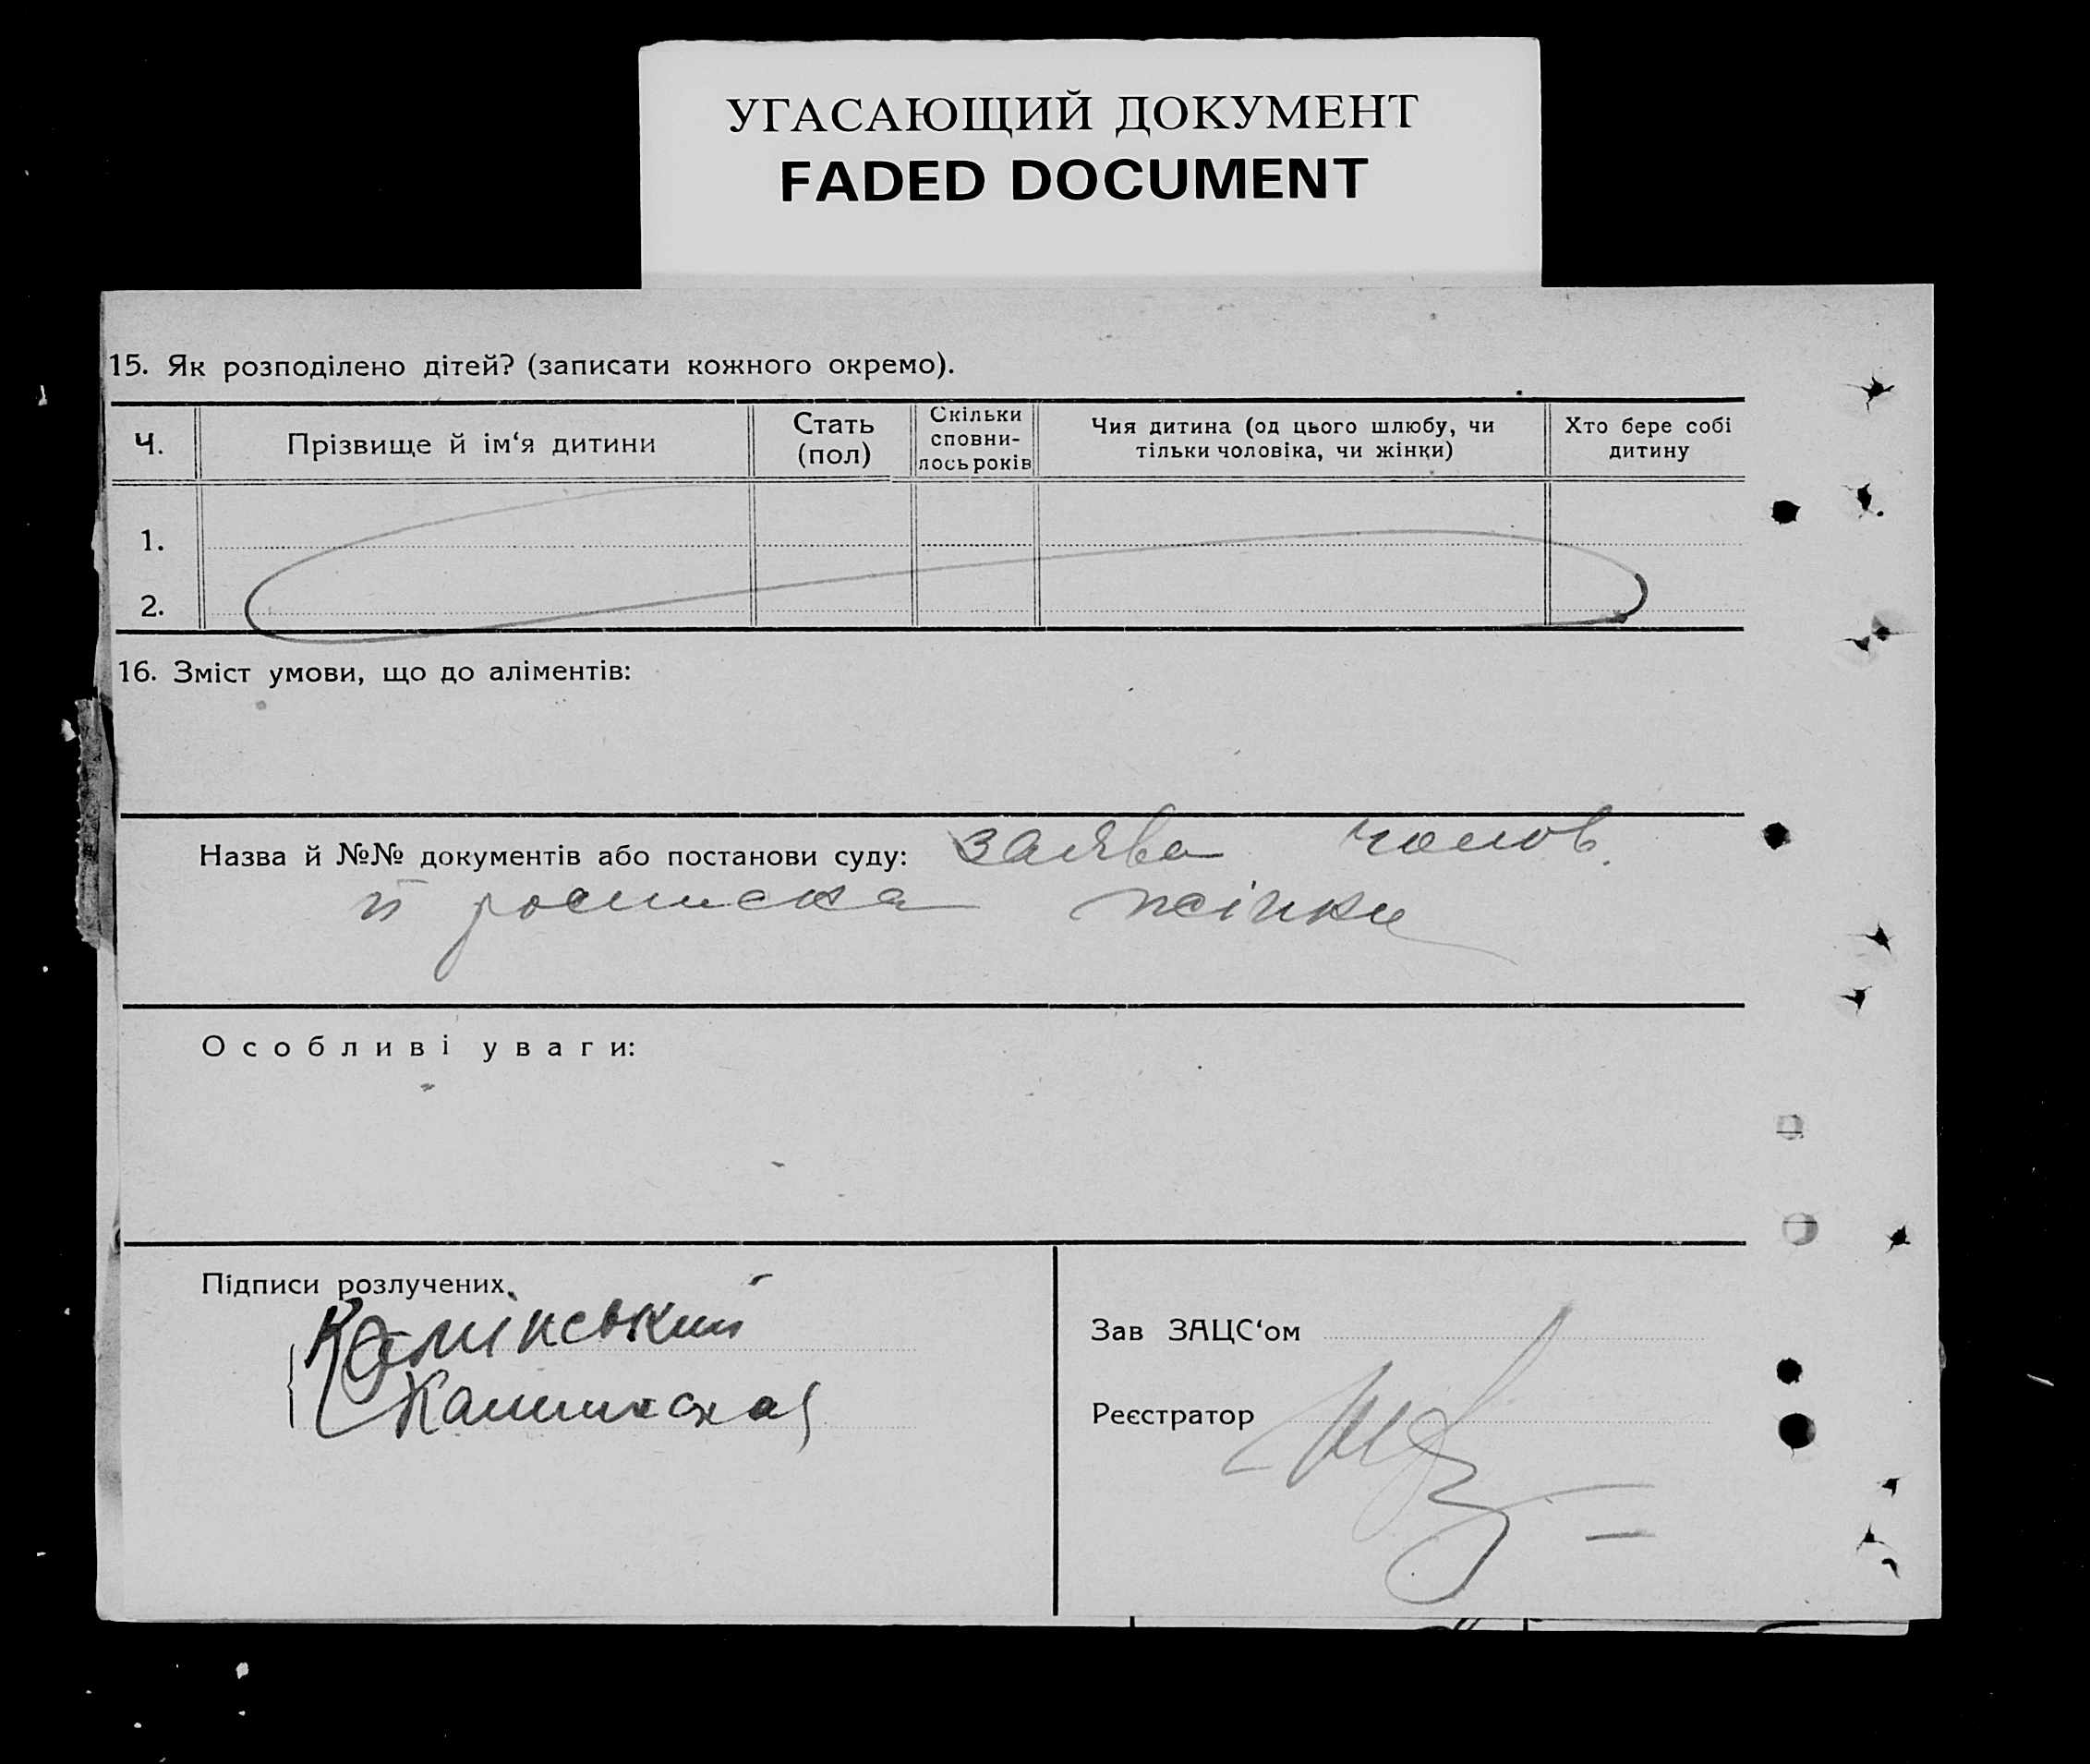 УГАСАЮЩИЙ ДОКУМЕНТ
FADED DOCUMENT
15. Як розподілено дітей? (записати кожного окремо).
Ч. Прізвище й ім‘я дитини Стать (пол) Скільки сповни-лось років Чия дитина (од цього шлюбу, чи тільки чоловіка, чи жінки) Хто бере собі дитину
1.
2.
16. Зміст умови, що до аліментів:
Назва й №№ документів або постанови суду: заява чолов.
й росписка жінки
Особливі уваги:
Підписи розлучених
Камінський
Каминская
Зав ЗАЦС‘ом
Реєстратор